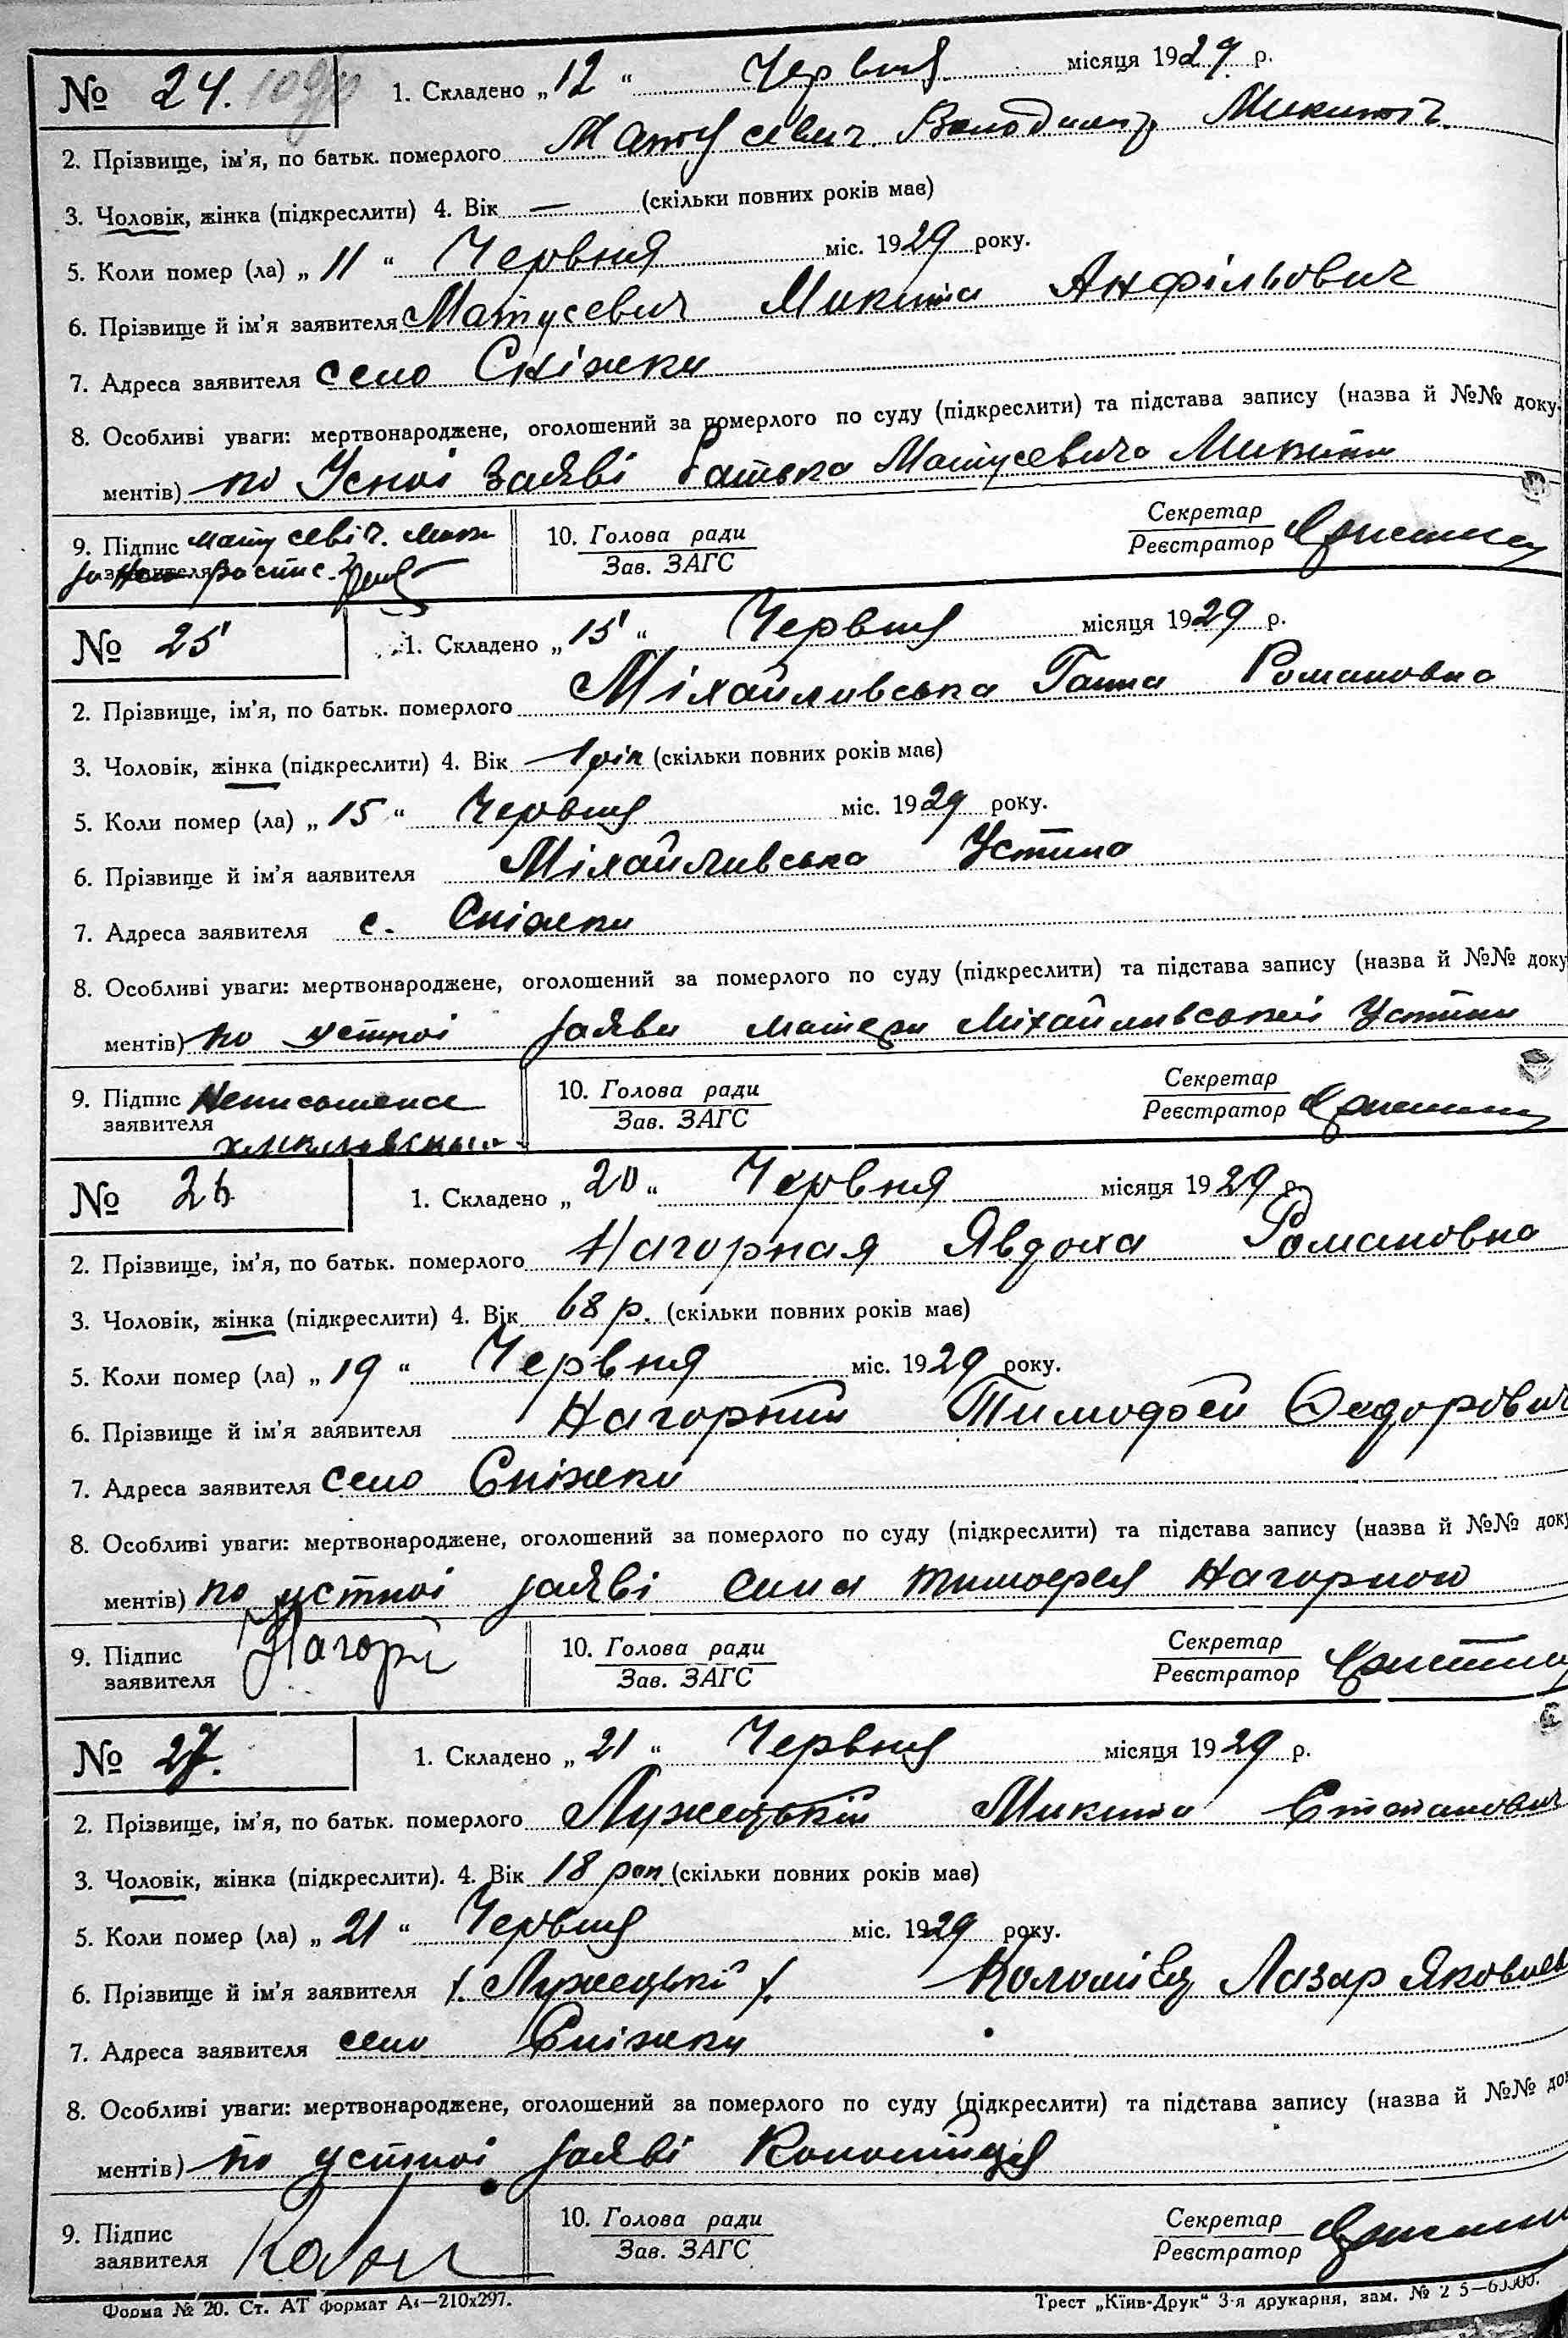 № 24. 1. Складено „12“ Червня місяця 1929 р.
2. Прізвище, ім'я, по батьк. померлого Матусевич Володимір Микитіч
3. Чоловік, жінка (підкреслити) 4. Вік — (скільки повних років має)
5. Коли помер (ла) „11“ Червня міс. 1929 року.
6. Прізвище й ім'я заявителя Матусевич Микита Анфільович
7. Адреса заявителя село Сніжки
8. Особливі уваги: мертвонароджене, оголошений за померлого по суду (підкреслити) та підстава запису (назва й №№ доку-
ментів) по Усної заяві батька Матусевича Микити
9. Підпис Матусевіч. 10. Голова ради Секретар
заявителя Зав. ЗАГС Реєстратор
№ 25 1. Складено „15“ Червня місяця 1929 р.
2. Прізвище, ім'я, по батьк. померлого Міхайливська Ганна Романовна
3. Чоловік, жінка (підкреслити) 4. Вік 1 рік (скільки повних років має)
5. Коли помер (ла) „15“ Червня міс. 1929 року.
6. Прізвище й ім'я заявителя Міхайливська Устина
7. Адреса заявителя с. Сніжки
8. Особливі уваги: мертвонароджене, оголошений за померлого по суду (підкреслити) та підстава запису (назва й №№ доку
ментів) по устної заяви матери Міхайливської Устини
9. Підпис 10. Голова ради Секретар
заявителя Зав. ЗАГС Реєстратор
№ 26 1. Складено „20“ Червня місяця 1929 р.
2. Прізвище, ім'я, по батьк. померлого Нагорная Явдоха Романовна
3. Чоловік, жінка (підкреслити) 4. Вік 68 р. (скільки повних років має)
5. Коли помер (ла) „19“ Червня міс. 1929 року.
6. Прізвище й ім'я заявителя Нагорний Тимофей Федорович
7. Адреса заявителя село Сніжки
8. Особливі уваги: мертвонароджене, оголошений за померлого по суду (підкреслити) та підстава запису (назва й №№ доку
ментів) по устної заяві сина Тимофея Нагорного
9. Підпис 10. Голова ради Секретар
заявителя Зав. ЗАГС Реєстратор
№ 27. 1. Складено „21“ Червня місяця 1929 р.
2. Прізвище, ім'я, по батьк. померлого Лужецький Микита Степанович
3. Чоловік, жінка (підкреслити). 4. Вік 18 рок (скільки повних років має)
5. Коли помер (ла) „21“ Червня міс. 1929 року.
6. Прізвище й ім'я заявителя /. Лужецькі /. Коломієц Лазар Яковлев
7. Адреса заявителя село Сніжки
8. Особливі уваги: мертвонароджене, оголошений за померлого по суду (підкреслити) та підстава запису (назва й №№ док
ментів) по устної заяві Коломійця
9. Підпис 10. Голова ради Секретар
заявителя Зав. ЗАГС Реєстратор
Форма № 20. Ст. АТ формат А4—210х297. Трест „Київ-Друк“ 3-я друкарня, зам. №